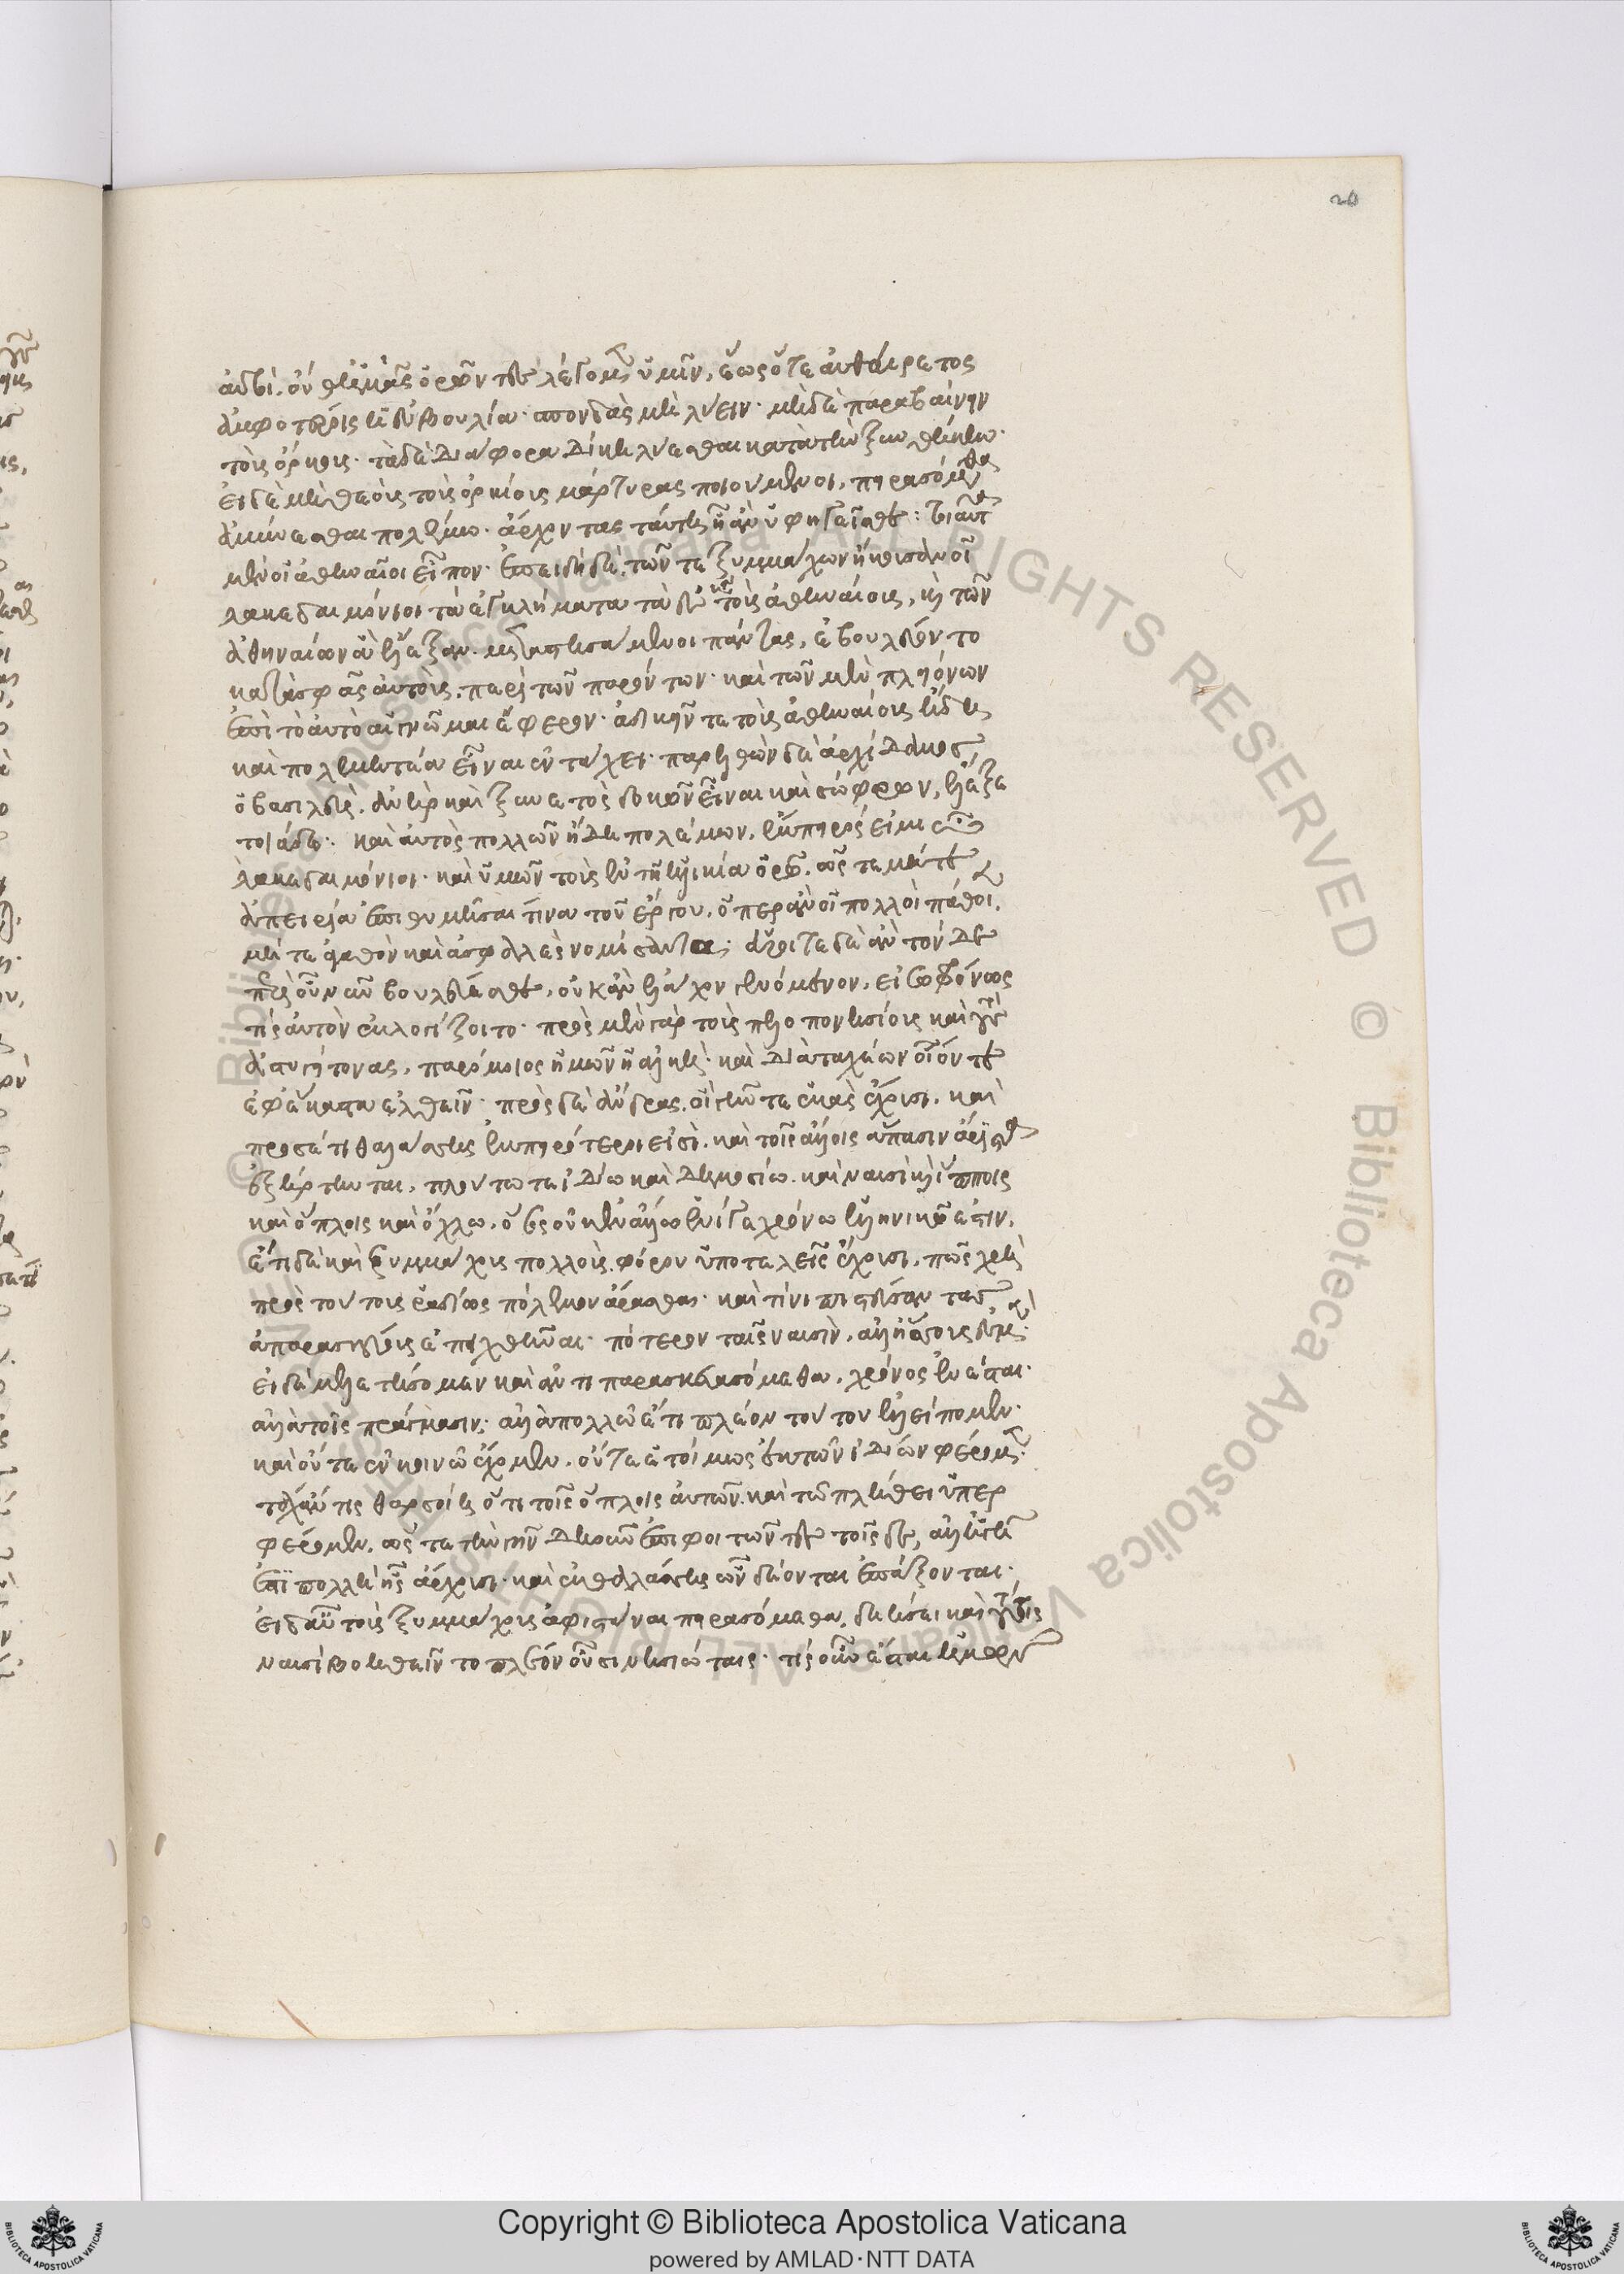 αὐτοὶ. οὔθ' ὑμᾶς ὁρῶντες λέγομεν ὑμῖν, ἕως ὅτε αὐθαίρετος
ἀμφοτέροις ἡ εὐβουλία. σπονδὰς μὴ λύειν. μηδὲ παραβαίνειν
τοὺς ὅρκους. τὰ δὲ διάφορα δίκη λύεσθαι κατὰ τὴν ξυνθήκην.
εἰ δὲ μὴ θεοὺς τοὺς ὁρκίους μάρτυρας ποιούμενοι, πειρασόμεθα
ἀμύνεσθαι πολέμου. ἄρχοντας ταύτη ᾗ ἂν ὑφηγεῖσθε: τοιαῦτα
μὲν οἱ ἀθηναῖοι εἶπον. ἐπειδὴ δὲ, τῶν τε ξυμμάχων ἤκουσαν οἱ
λακεδαιμόνιοι τὰ ἐγκλήματα τὰ ἐς τοὺς ἀθηναίους, καὶ τῶν
ἀθηναίων ἃ ἔλεξαν. μεταστησάμενοι πάντας, ἐβουλεύοντο
κατὰ σφᾶς αὐτοὺς, περὶ τῶν παρόντων. καὶ τῶν μὲν πλειόνων
ἐπὶ τὸ αὐτὸ αἱ γνῶμαι ἔφερον. ἀδικεῖν τε τοὺς ἀθηναίους ἤδη
καὶ πολεμητέα εἶναι ἐν τάχει. παρελθὼν δὲ ἀρχίδαμος,
ὁ βασιλεὺς. ἀνὴρ καὶ ξυνετὸς δοκῶν εἶναι καὶ σώφρων, ἔλεξε
τοιάδε: καὶ αὐτὸς πολλῶν ἤδη πολέμων, ἔμπειρός εἰμι ὦ
λακεδαιμόνιοι. καὶ ὑμῶν τοὺς ἐν τῆ ἡλικία ὁρῶ. ὥστε μήτε
ἀπειρία ἐπιθυμῆσαί τινα τοῦ ἔργου, ὅπερ ἂν οἱ πολλοὶ πάθοι.
μήτε ἀγαθὸν καὶ ἀσφαλὲς νομίσαντα; εὕροιτε δὲ ἂν τόνδε
περὶ οὗ νῦν βουλεύεσθε, οὐκ ἂν ἐλάχιστον γενόμενον, εἰ σωφρόνως
τίς αὐτὸν ἐκλογίζοιτο. πρὸς μὲν γὰρ τοὺς πελοποννησίους καὶ τοὺς
ἀστυγείτονας, παρόμοιος ἡμῶν ἡ ἀλκὴ. καὶ διὰ ταχέων οἷόν τε
ἐφ' ἕκαστα ἐλθεῖν. πρὸς δὲ ἄνδρας, οἳ γῆν τε ἑκὰς ἔχουσι. καὶ
προσέτι θαλάσσης ἐμπειρότεροι εἰσὶ. καὶ τοῖς ἄλλοις ἅπασιν ἄριστα
ἐξήρτηνται, πλούτω τε ἰδίω καὶ δημοσίω. καὶ ναυσὶ καὶ ἵπποις
καὶ ὅπλοις καὶ ὄχλω. ὅσος οὐκ ἐν ἄλλω ἑνί γε χωρίω ἑλληνικῶ ἐστιν.
ἔτι δὲ καὶ ξυμμάχους πολλοὺς φόρου ὑποτελεῖς ἔχουσι, πῶς χρὴ
πρὸς τούτους ῥαδίως πόλεμον ἄρασθαι. καὶ τίνι πιστεύσαντας,
ἀπαρασκεύους ἐπειχθῆναι. πότερον ταῖς ναυσὶν, ἀλλ' ἥσσους ἐσμέν.
εἰ δὲ μελετήσομεν καὶ ἀντιπαρασκευασόμεθα, χρόνος ἐνέσται.
ἀλλὰ τοῖς χρήμασιν; ἀλλὰ πολλῶ ἔτι πλέον τούτου ἐλλείπομεν.
καὶ οὔτε ἐν κοινῶ ἔχομεν. οὔτε ἑτοίμως ἐκ τῶν ἰδίων φέρομεν.
τάχ' ἄν τις θαρσοίη ὅτι τοῖς ὅπλοις αὐτῶν. καὶ τῶ πλήθει ὑπερ
φέρομεν. ὥστε τὴν γῆν δηιοῦν ἐπιφοιτῶντες. τοῖς δὲ, ἄλλη γῆ
ἐστὶ πολλὴ ἧς ἄρχουσι. καὶ ἐκ θαλάσσης ὧν δέονται ἐπάξονται.
εἰ δ' αὖ τοὺς ξυμμάχους ἀφιστάναι πειρασόμεθα, δεήσει καὶ τούτοις
ναυσὶ βοηθεῖν τὸ πλέον οὖσι νησιώταις. τίς οὖν ἔσται ἡμῶν